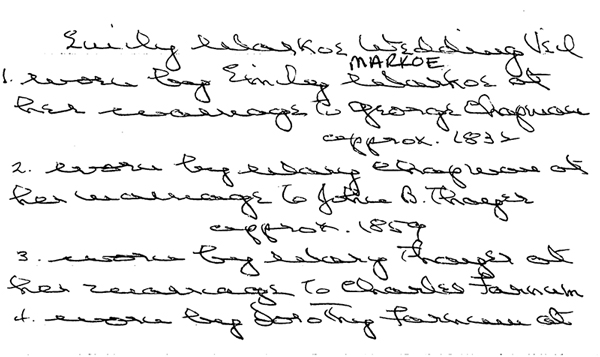 Emily Markoe Wedding Veil
MARKOE
1. worn by Emily Markoe at
her marriage to George Chapman
approx. 1832
2. worn by Mary Chapman at
her marriage to John B. Thayer
approx. 1859
3. worn by Mary Thayer at
her marriage to Charles Farnum
4. worn by Dorothy Farnum at